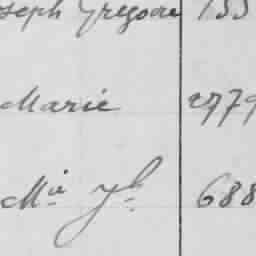 oseph Gregoire 133
Marie 2779
Mie Jh 688